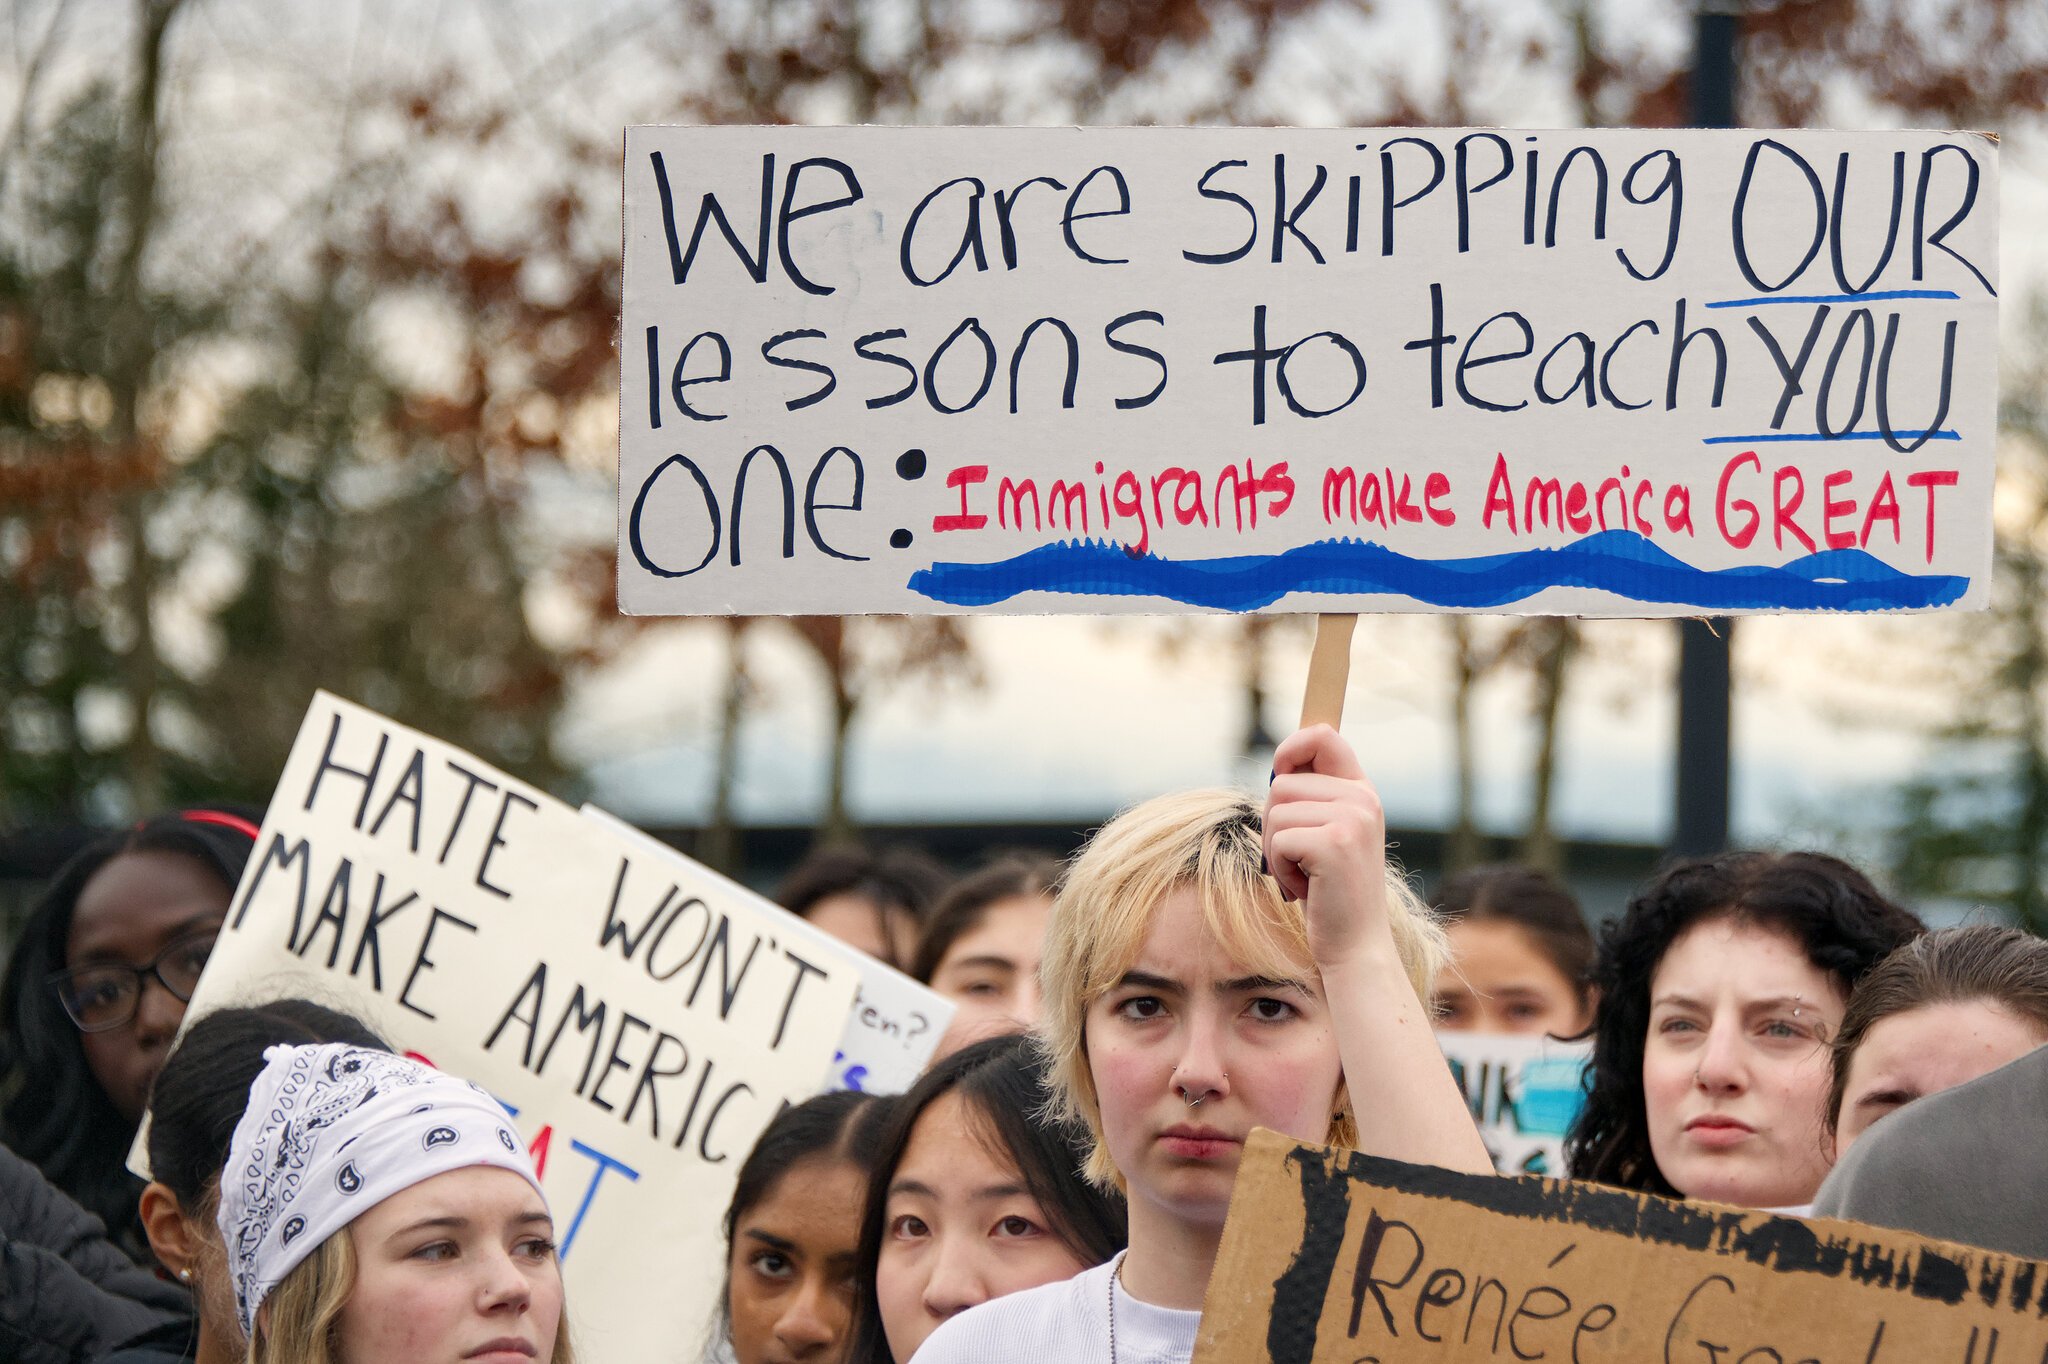 We are skipping OUR
lessons to teach YOU
one: Immigrants make America GREAT
HATE WON'T
MAKE AMERIC
AT
ten?
Renée